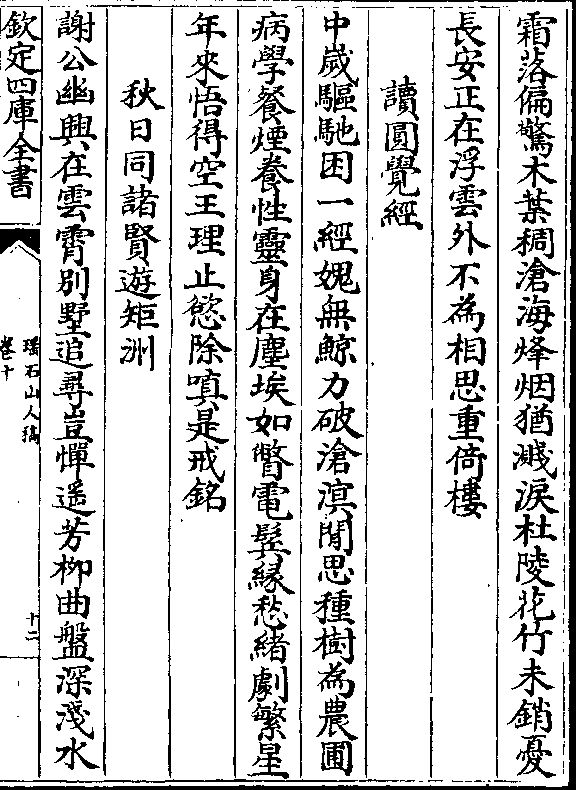 霜落偏驚木葉稠滄海烽烟猶濺淚杜陵花竹未銷憂
長安正在浮雲外不為相思重倚樓
讀圓覺經
中歲驅馳困一經媿無鯨力破滄溟閒思種樹為農圃
病學餐煙養性靈身在塵埃如瞥電髩緣愁緒劇繁星
年來悟得空王理止慾除嗔是戒銘
秋日同諸賢遊矩洲
謝公幽興在雲霄別墅追尋豈憚遥芳柳曲盤深淺水
欽定四庫全書
瑶石山人稿
卷十
十二